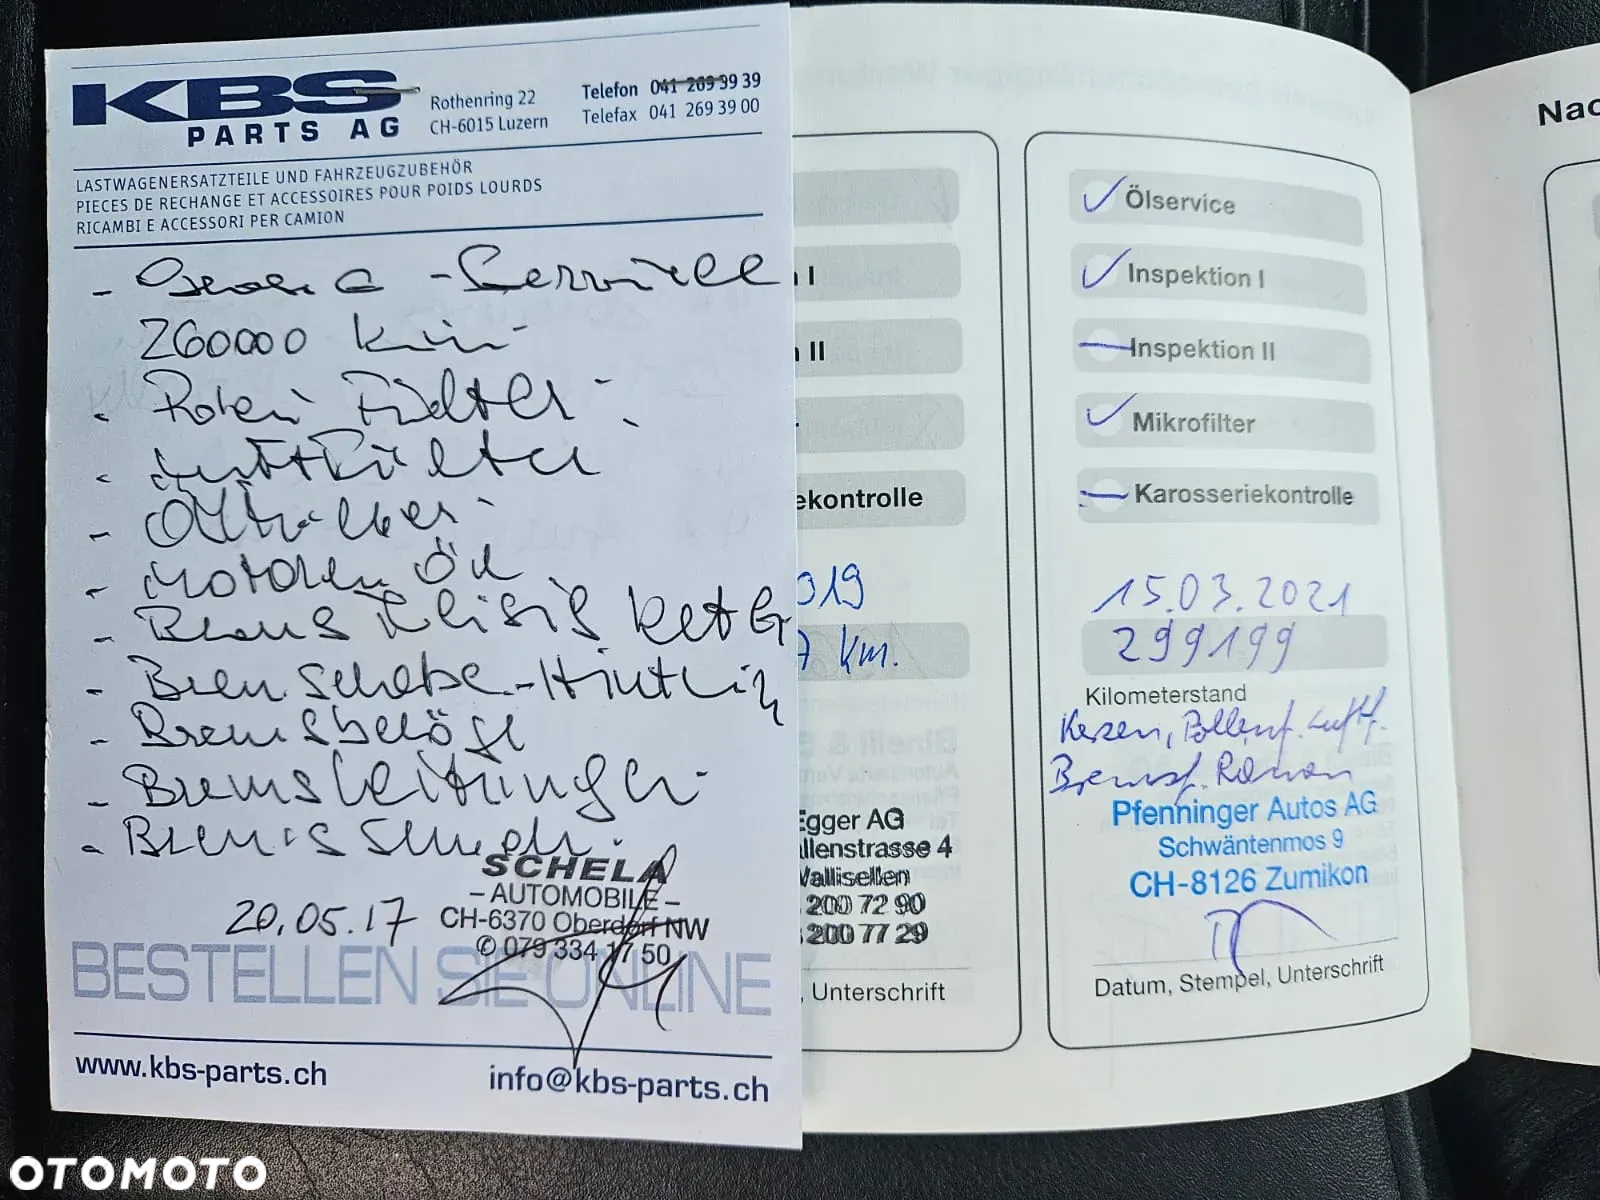 KBS
PARTS AG
Rothenring 22
CH-6015 Luzern
Telefon 041 269 39 39
Telefax 041 269 39 00
LASTWAGENERSATZTEILE UND FAHRZEUGZUBEHÖR
PIECES DE RECHANGE ET ACCESSOIRES POUR POIDS LOURDS
RICAMBI E ACCESSORI PER CAMION
- Service
260000 km
- Polen Filter
- Luftfilter
- Ölfilter
- Motoren Öl
-
- Hinten
- Bremsbeläge
- Bremsleitungen
-
SCHELA
- AUTOMOBILE -
CH-6370 Oberdorf NW
✆ 079 334 17 50
20.05.17
BESTELLEN SIE ONLINE
www.kbs-parts.ch
info@kbs-parts.ch
I
II
ekontrolle
019
7 Km.
Egger AG
llenstrasse 4
Wallisellen
200 72 90
200 77 29
, Unterschrift
Ölservice
Inspektion I
Inspektion II
Mikrofilter
Karosseriekontrolle
15.03.2021
299199
Kilometerstand
Kerzen, Pollenf. Luftf.
Bremsf.
Pfenninger Autos AG
Schwäntenmos 9
CH-8126 Zumikon
Datum, Stempel, Unterschrift
Nac
OTOMOTO